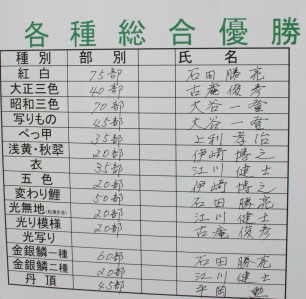 各種総合優勝
種別 部別 氏名
紅白 75部 石田勝亮
大正三色 40部 古庵俊彦
昭和三色 70部 大谷一登
写りもの 45部 大谷一登
べっ甲 35部 上利孝治
浅黄・秋翠 20部 伊崎博之
衣 35部 江川健士
五色 20部 伊崎博之
変わり鯉 50部 石田勝亮
光無地 20部 江川健士
光り模様 20部 古庵俊彦
光写り
金銀鱗一種 60部 石田勝亮
金銀鱗二種 20部 江川健士
丹頂 45部 平岡勲